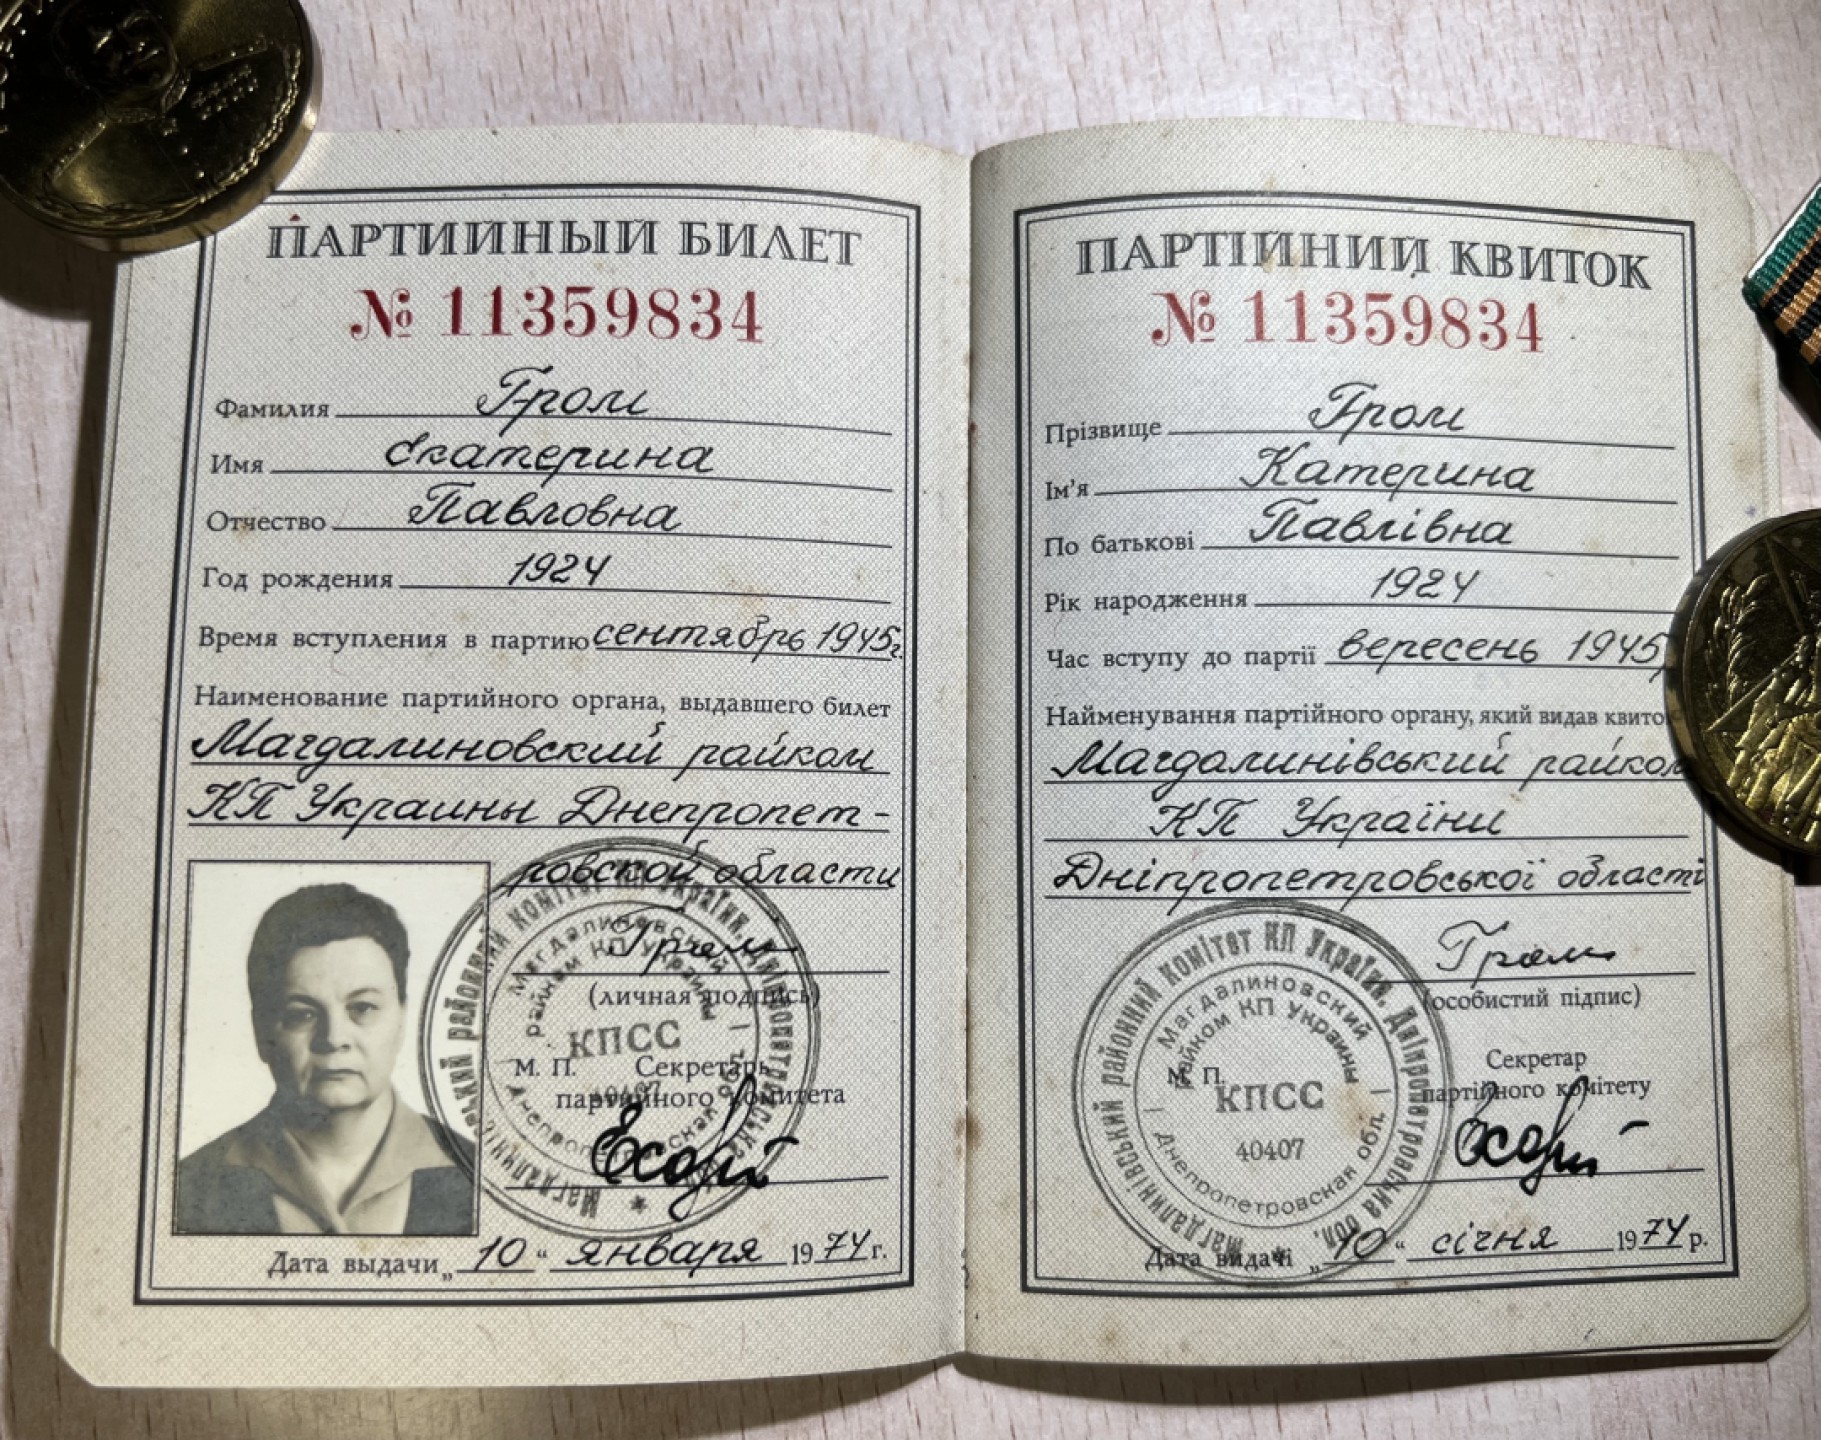 ПАРТИЙНЫЙ БИЛЕТ
№ 11359834
Фамилия Гром
Имя Екатерина
Отчество Павловна
Год рождения 1924
Время вступления в партию сентябрь 1945г.
Наименование партийного органа, выдавшего билет
Магдалиновский райком
КП Украины Днепропет-
ровской области
Гром
(личная подпись)
М. П. Секретарь
партийного комитета
Дата выдачи „10“ января 1974 г.
Магдалинівський районний комітет КП України, Дніпропетровська обл.
Магдалиновский
райком КП Украины
КПСС
40407
Днепропетровская обл.
ПАРТІЙНИЙ КВИТОК
№ 11359834
Прізвище Гром
Ім'я Катерина
По батькові Павлівна
Рік народження 1924
Час вступу до партії вересень 1945
Найменування партійного органу, який видав квиток
Магдалинівський райком
КП України
Дніпропетровської області
Гром
(особистий підпис)
М. П. Секретар
партійного комітету
Дата видачі „10“ січня 1974 р.
Магдалинівський районний комітет КП України, Дніпропетровська обл.
Магдалиновский
райком КП Украины
КПСС
40407
Днепропетровская обл.